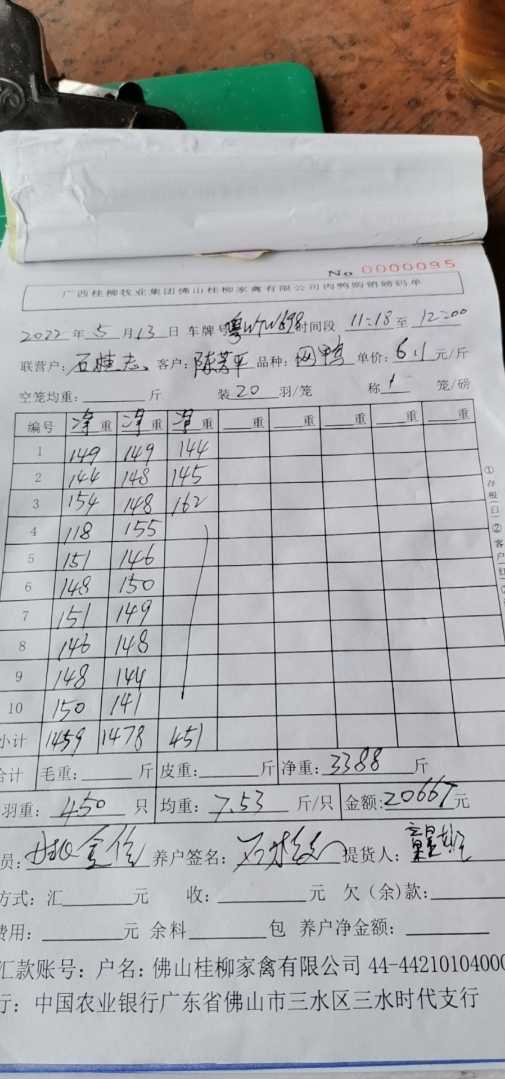 No 0000095
广西桂柳牧业集团佛山桂柳家禽有限公司肉鸭购销磅码单
2022 年 5 月 13 日 车牌号 粤 时间段 11:18 至 12:00
联营户: 石桂志 客户: 陈芳平 品种: 鸭 单价: 6.1 元/斤
空笼均重: 斤 装 20 羽/笼 称 1 笼/磅
编号 净重 净重 净重 重 重 重 重
1 149 149 144
2 144 148 145
3 154 148 162
4 118 155
5 151 146
6 148 150
7 151 149
8 146 148
9 148 144
10 150 141
小计 1459 1478 451
合计 毛重: 斤 皮重: 斤 净重: 3388 斤
羽重: 450 只 均重: 7.53 斤/只 金额: 20667 元
员: 养户签名: 提货人:
方式: 汇 元 收: 元 欠(余)款:
费用: 元 余料 包 养户净金额:
汇款账号: 户名: 佛山桂柳家禽有限公司 44-44210104000
行: 中国农业银行广东省佛山市三水区三水时代支行
①存根(白)②客户(红)